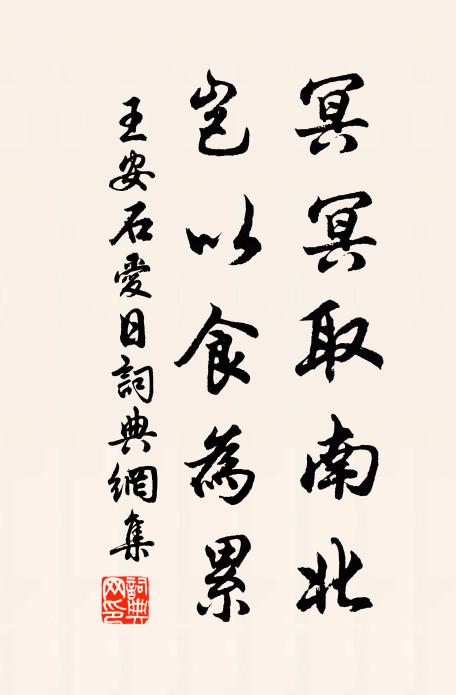 冥冥取南北
豈以食為累
王安石愛日詞典網集
詞典網印